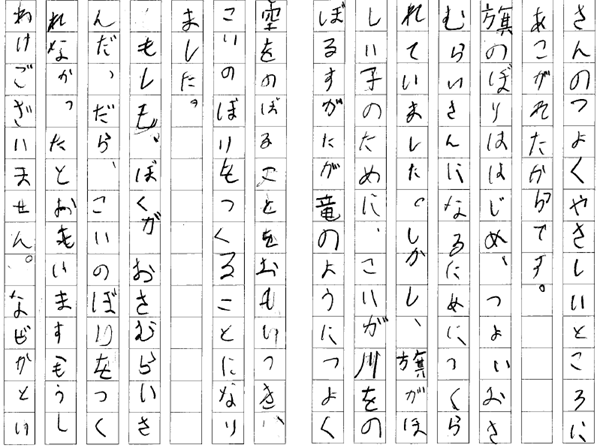 さんのつよくやさしいところに
あこがれたからです。
旗のぼりははじめ、つよいおさ
むらいさんになるためにつくら
れていました。しかし、旗がほ
しい子のために、こいが川をの
ぼるすがたが竜のようにつよく
空をのぼることをおもいつき、
こいのぼりをつくることになり
ました。
もしも、ぼくがおさむらいさ
んだっだら、こいのぼりをつく
れなかったとおもいますもうし
わけございません。なぜかとい